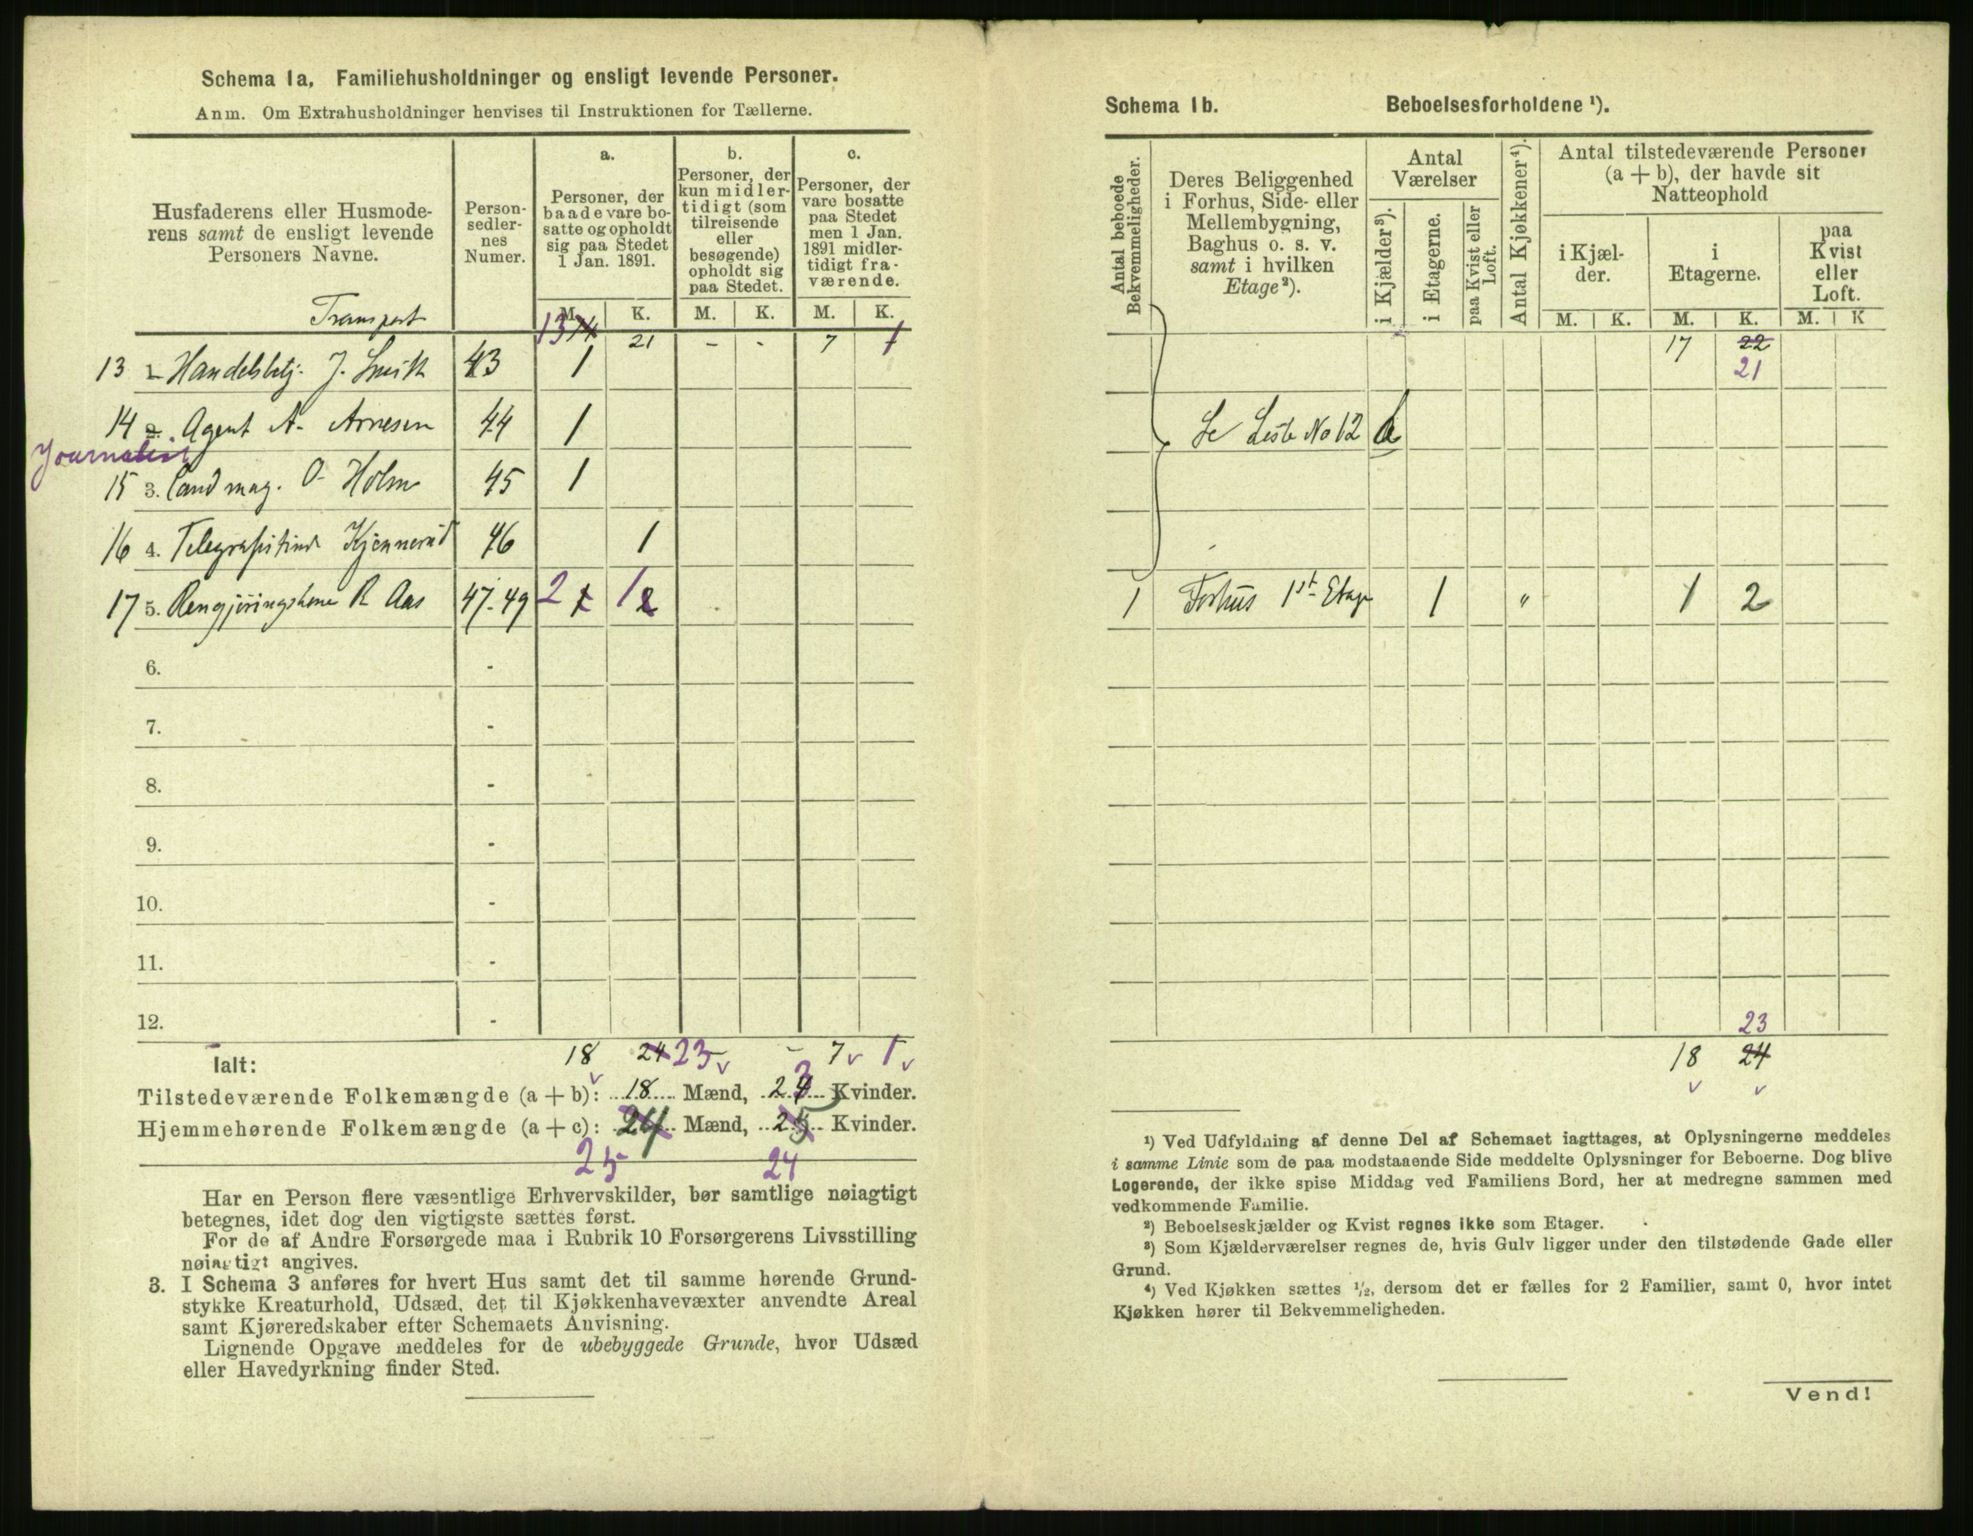 Schema 1a, Familiehusholdninger og ensligt levende Personer.
Anm. Om Extrahusholdninger henvises til Instruktionen for Tællerne.
Husfaderens eller Husmoderens samt de ensligt levende Personers Navne.
Personsedlernes Numer.
a. Personer, der baade vare bosatte og opholdt sig paa Stedet 1 Jan. 1891.
b. Personer, der kun midlertidigt (som tilreisende eller besøgende) opholdt sig paa Stedet.
c. Personer, der vare bosatte paa Stedet men 1 Jan. 1891 midlertidigt fraværende.
M. K. M. K. M. K.
Transport 13 14 21 - - 7 1
13 1. Handelsbetj. J. Smith 43 1
14 2. Agent A. Arnesen 44 1
Journalist
15 3. Cand mag. O. Holm 45 1
16 4. Telegrafistinde Kjennerud 46 1
17 5. Rengjøringskone R Aas 47-49 2 1 1 2
6. -
7. -
8. -
9. -
10. -
11. -
12. -
Ialt: 18 24 23 - 7 1
Tilstedeværende Folkemængde (a + b): 18 Mænd, 24 3 Kvinder.
Hjemmehørende Folkemængde (a + c): 24 Mænd, 25 Kvinder.
25 24
Har en Person flere væsentlige Erhvervskilder, bør samtlige nøiagtigt
betegnes, idet dog den vigtigste sættes først.
For de af Andre Forsørgede maa i Rubrik 10 Forsørgerens Livsstilling
nøiagtigt angives.
3. I Schema 3 anføres for hvert Hus samt det til samme hørende Grund-
stykke Kreaturhold, Udsæd, det til Kjøkkenhavevæxter anvendte Areal
samt Kjøreredskaber efter Schemaets Anvisning.
Lignende Opgave meddeles for de ubebyggede Grunde, hvor Udsæd
eller Havedyrkning finder Sted.
Schema 1b. Beboelsesforholdene ¹).
Antal beboede Bekvemmeligheder.
Deres Beliggenhed i Forhus, Side- eller Mellembygning, Baghus o. s. v. samt i hvilken Etage²).
Antal Værelser
i Kjælder³).
i Etagerne.
paa Kvist eller Loft.
Antal Kjøkkener⁴).
Antal tilstedeværende Personer (a + b), der havde sit Natteophold
i Kjælder.
i Etagerne.
paa Kvist eller Loft.
M. K. M. K. M. K
17 22
21
Se Liste No 12 b
1 Forhus 1st Etage 1 " 1 2
23
18 24
¹) Ved Udfyldning af denne Del af Schemaet iagttages, at Oplysningerne meddeles
i samme Linie som de paa modstaaende Side meddelte Oplysninger for Beboerne. Dog blive
Logerende, der ikke spise Middag ved Familiens Bord, her at medregne sammen med
vedkommende Familie.
²) Beboelseskjælder og Kvist regnes ikke som Etager.
³) Som Kjælderværelser regnes de, hvis Gulv ligger under den tilstødende Gade eller
Grund.
⁴) Ved Kjøkken sættes ½, dersom det er fælles for 2 Familier, samt 0, hvor intet
Kjøkken hører til Bekvemmeligheden.
Vend!